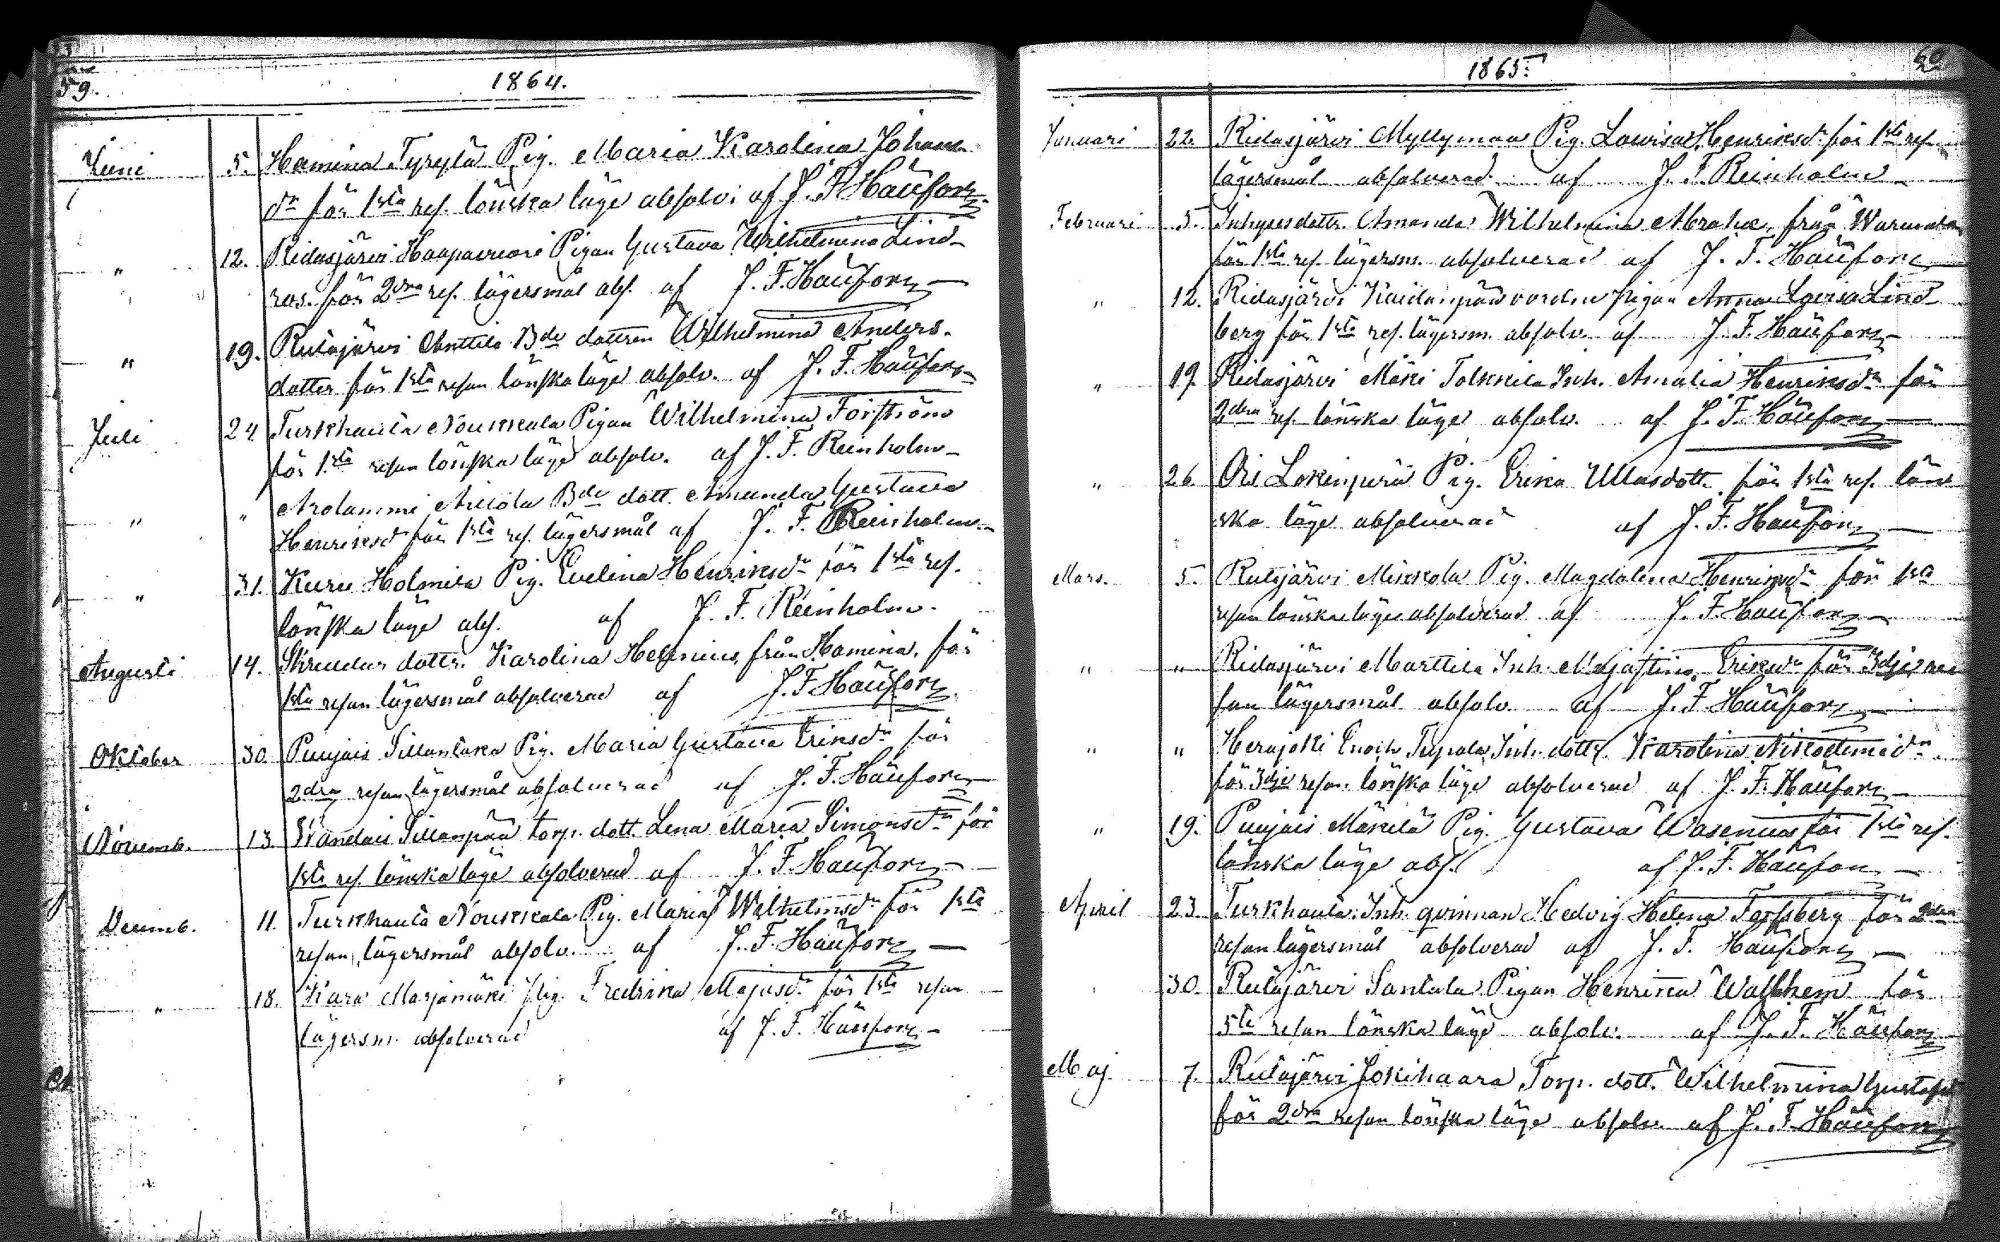 59.
1864.
Juni 5. Hamina Tyrylä Pig. Maria Karolina Johans
dr för 1sta res. lönska läge absolv. af J. F. Häufors
" 12. Ridasjärvi Haapavuori Pigan Gustava Wilhelmina Lind-
ros. för 2dra res. lägersmål abs. af J. F. Häufors
" 19. Rutajärvi Anttila Bde dottren Wilhelmina Anders-
dotter för 1sta resan lönska läge absolv. af J. F. Häufors
Juli 24 Turkhauta Noukkala Pigan Wilhelmina Forsström
för 1sta resan lönska läge absolv. af J. F. Reinholm
" " Arolammi Bde dott. Amanda Gustava
Henriksdr för 1sta res. lägersmål af J. F. Reinholm
" 31. Kuru Holmila Pig. Evelina Henriksdr för 1sta res.
lönska läge abs. af J. F. Reinholm.
Augusti 14. Skreddar dottr. Karolina Helenius från Hamina, för
1sta resan lägersmål absolverad af J. F. Häufors
Oktober 30. Puujais Sillantaka Pig. Maria Gustava Eriksdr för
2dra resan lägersmål absolverad af J. F. Häufors
Novemb. 13. Wandais Sillanpää torp. dott. Lena Maria Simonsdr för
1sta res. lönska läge absolverad af J. F. Häufors
Decemb. 11. Turkhauta Noukkala Pig. Maria Wilhelmsdr för 1sta
resan lägersmål absolv. af J. F. Häufors
" 18. Kara Marjamäki Pig. Fredrika Majasdr för 1sta resan
lägersm. absolverad af J. F. Häufors
1865.
60
Januari 22. Ridasjärvi Myllymaa Pig. Lovisa Henriksdr för 1sta res.
lägersmål absolverad af J. F. Reinholm
Februari 5. Inhyses dottr. Amanda Wilhelmina Abrahx. från
för 1sta res. lägersm. absolverad af J. F. Häufors
" 12. Ridasjärvi Pigan Anna Lovisa Lind
berg för 1sta res. lägersm. absolv. af J. F. Häufors
" 19. Ridasjärvi Mäki Tolkkila Inh. Amalia Henriksdr för
2dra res. lönska läge absolv. af J. F. Häufors
" 26. Ois Lokinperä Pig. Erika Ullasdott. för 1sta res. lön
ska läge absolverad af J. F. Häufors
Mars. 5. Rutajärvi Mikkola Pig. Magdalena Henriksdr för 1sta
resan lönska läge absolverad af J. F. Häufors
" " Ridasjärvi Marttila Inh. Majastina Eriksdr för 3dje re
san lägersmål absolv. af J. F. Häufors
" " Herajoki Inh. dottr. Karolina Nikodemidr
för 3dje resan lönska läge absolverad af J. F. Häufors
" 19. Puujais Mäkilä Pig. Gustava Wasenius för 1sta res.
lönska läge abs. af J. F. Häufors
April 23. Turkhauta Inh. qvinnan Hedvig Helena Forssberg för 2dra
resan lägersmål absolverad af J. F. Häufors
30. Rutajärvi Santala Pigan Henrika Wallhem för
5te resan lönska läge absolv. af J. F. Häufors
Maj 7. Rutajärvi Jokihaara Torp. dott. Wilhelmina Gustafsd
för 2dra resan lönska läge absolv. af J. F. Häufors